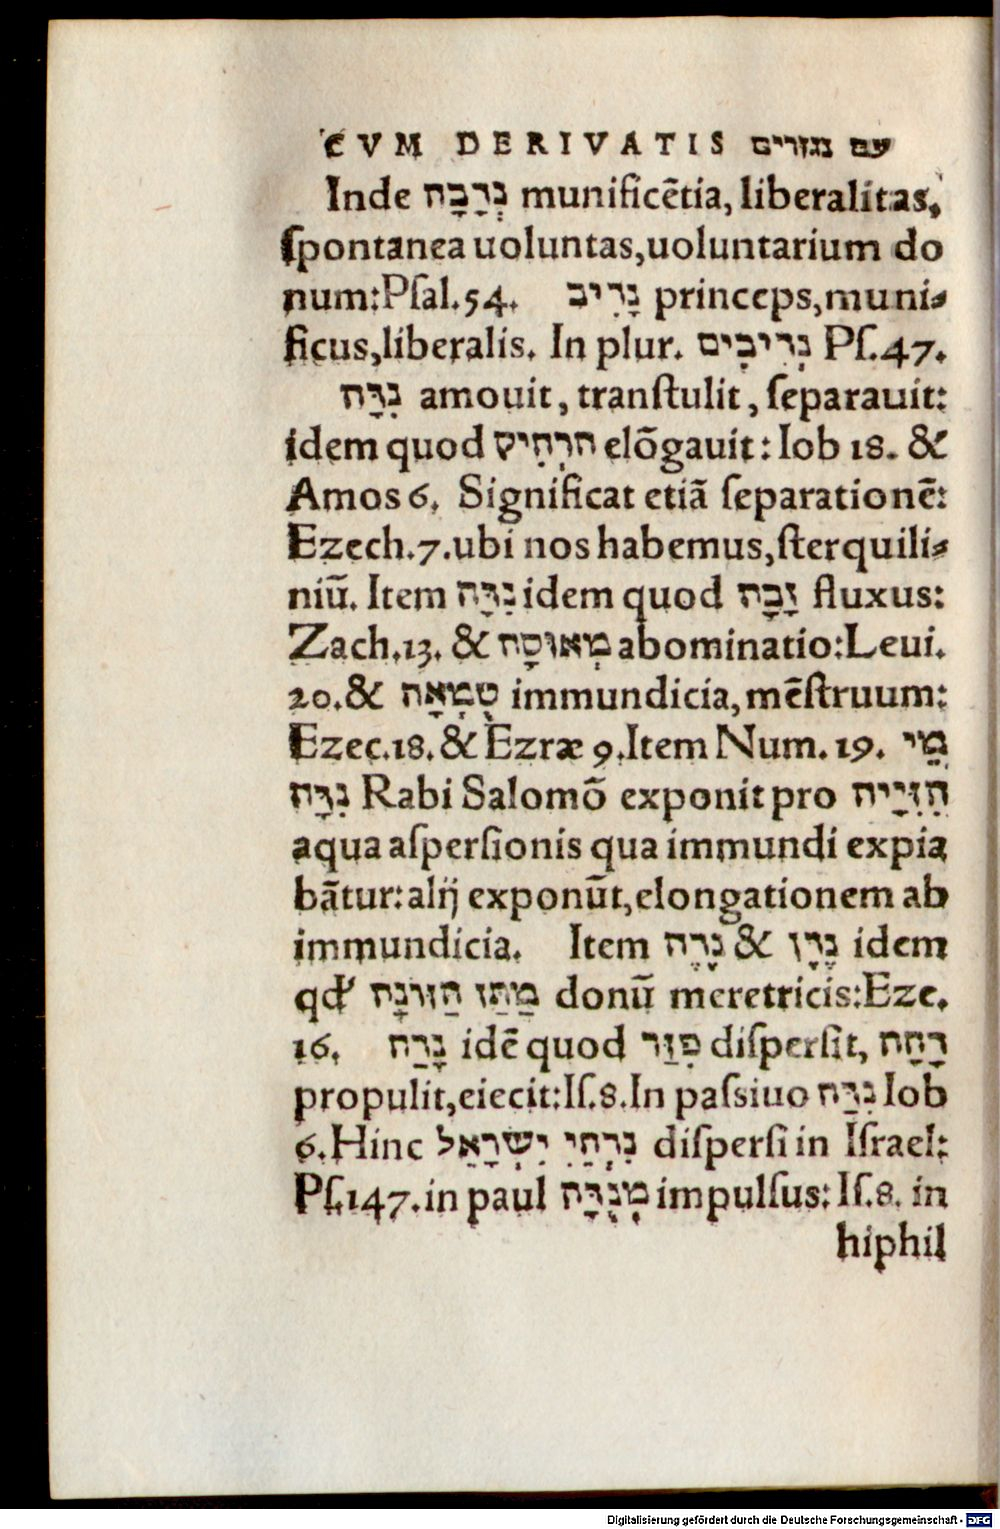 CVM DERIVATIS עם גזרים
Inde נְדָבָה munificētia, liberalitas,
ſpontanea uoluntas,uoluntarium do
num:Pſal.54. נָדִיב princeps,muni⸗
ficus,liberalis. In plur. נְדִיבִים Pſ.47.
נִדָּה amouit, tranſtulit, ſeparauit:
idem quod הִרְחִיק elōgauit: Iob 18. &
Amos 6. Significat etiā ſeparationē:
Ezech.7.ubi nos habemus,ſterquili⸗
niū. Item נִדָּה idem quod זָבָה fluxus:
Zach.13. & מְאוּסָה abominatio:Leui.
20.& טֻמְאָה immundicia, mēſtruum:
Ezec.18.& Ezræ 9.Item Num. 19. מֵי
נִדָּה Rabi Salomō exponit pro הַזָּיָיה
aqua aſperſionis qua immundi expia
bātur:alij exponūt,elongationem ab
immundicia. Item נָדֶה & נָדָן idem
qd מַתַּן הַזּוֹנָה donū meretricis:Eze.
16. נָדַח idē quod פִזֵּר diſperſit, דָּחָה
propulit,eiecit:Iſ.8.In paſsiuo נִדַּח Iob
6.Hinc נִדְחֵי יִשְׂרָאֵל diſperſi in Iſrael:
Pſ.147.in paul מְנֻדָּח impulſus: Iſ.8. in
hiphil
Digitalisierung gefördert durch die Deutsche Forschungsgemeinschaft - DFG